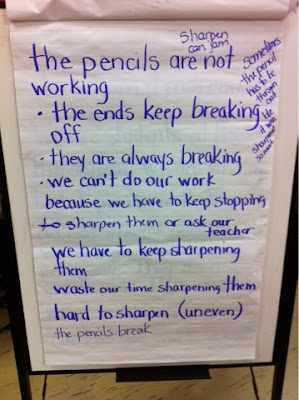 sharpen
can jam
the pencils are not
working
• the ends keep breaking
off
• they are always breaking
• we can't do our work
because we have to keep stopping
to sharpen them or ask our
teacher
we have to keep sharpening
them
waste our time sharpening them
hard to sharpen (uneven)
the pencils break
sometimes
the pencil
has to be
thrown
out